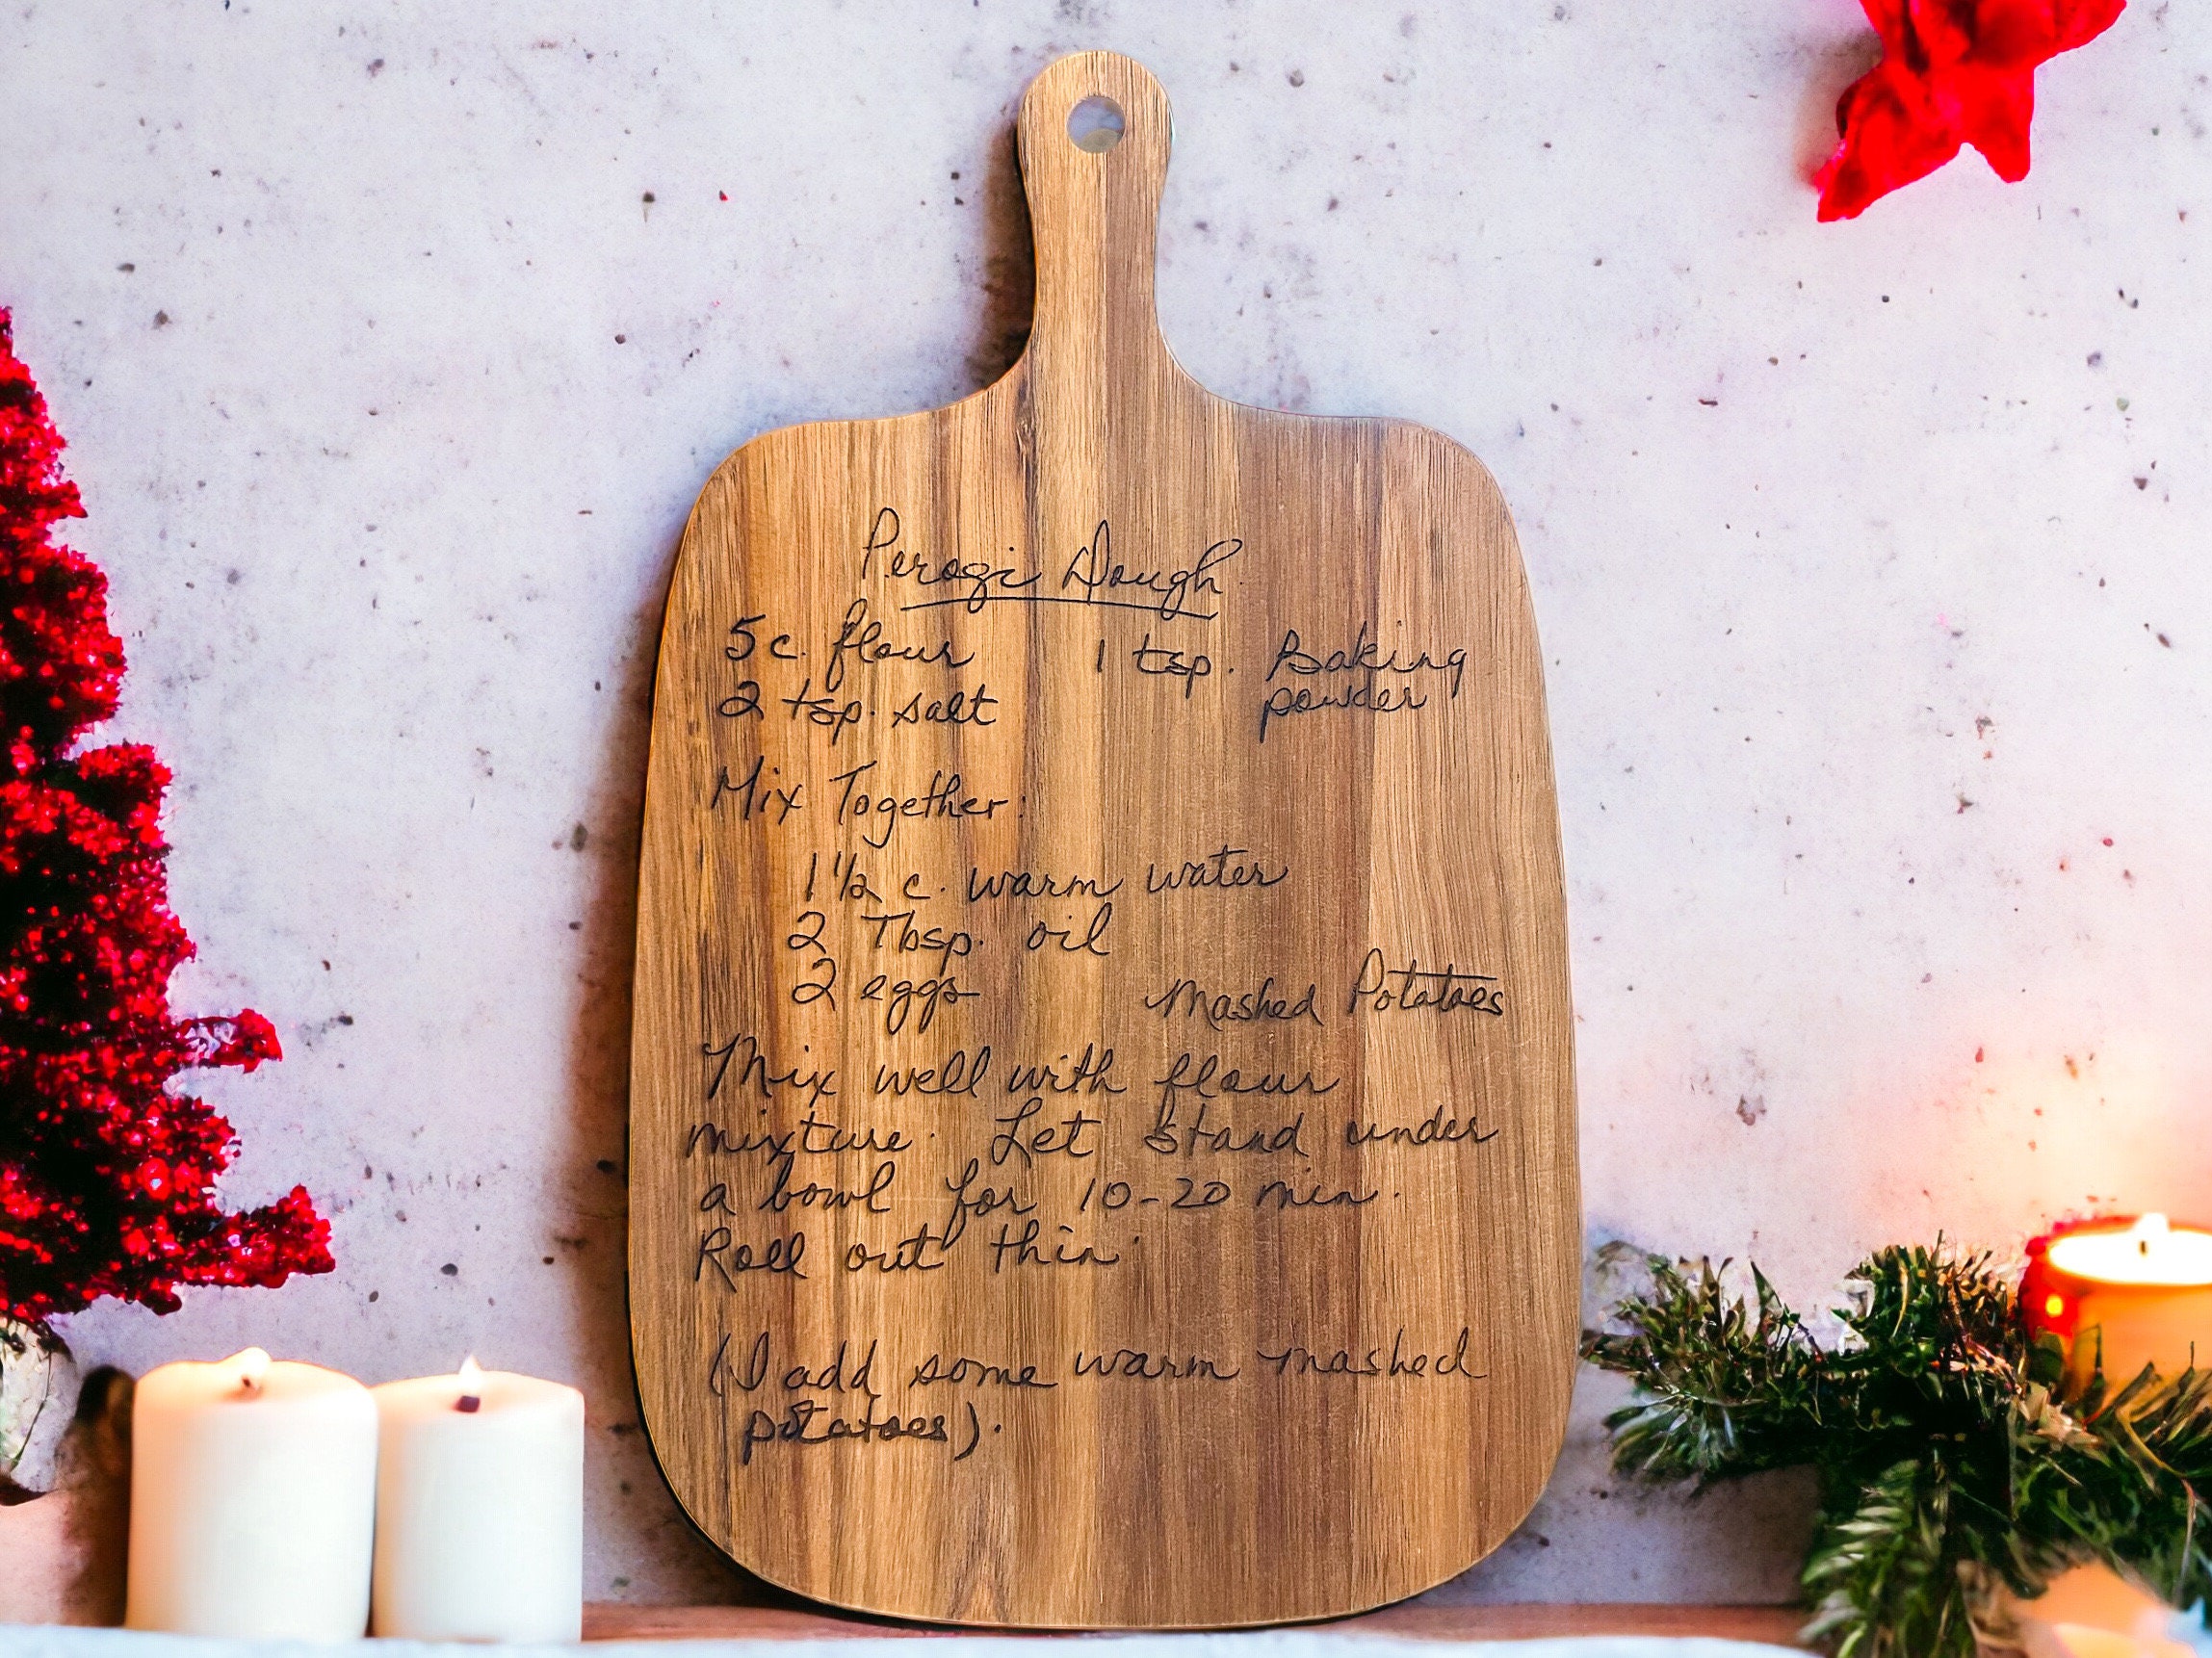 Perogi Dough
5 c. flour 1 tsp. Baking
2 tsp. salt powder
Mix Together:
1 1/2 c. warm water
2 Tbsp. oil
2 eggs Mashed Potatoes
Mix well with flour
mixture. Let stand under
a bowl for 10-20 min.
Roll out thin.
(I add some warm mashed
potatoes).